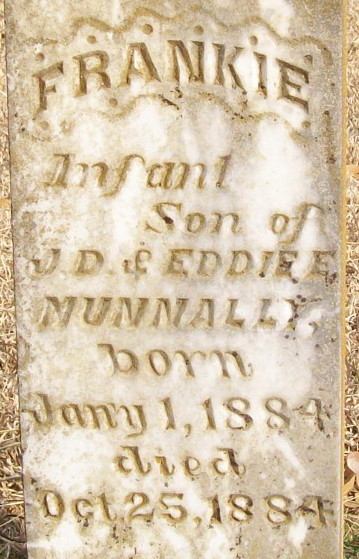 FRANKIE
Infant
Son of
J.D. & EDDIE E.
NUNNALLY,
born
Jany 1, 1884
died
Oct 25, 1884